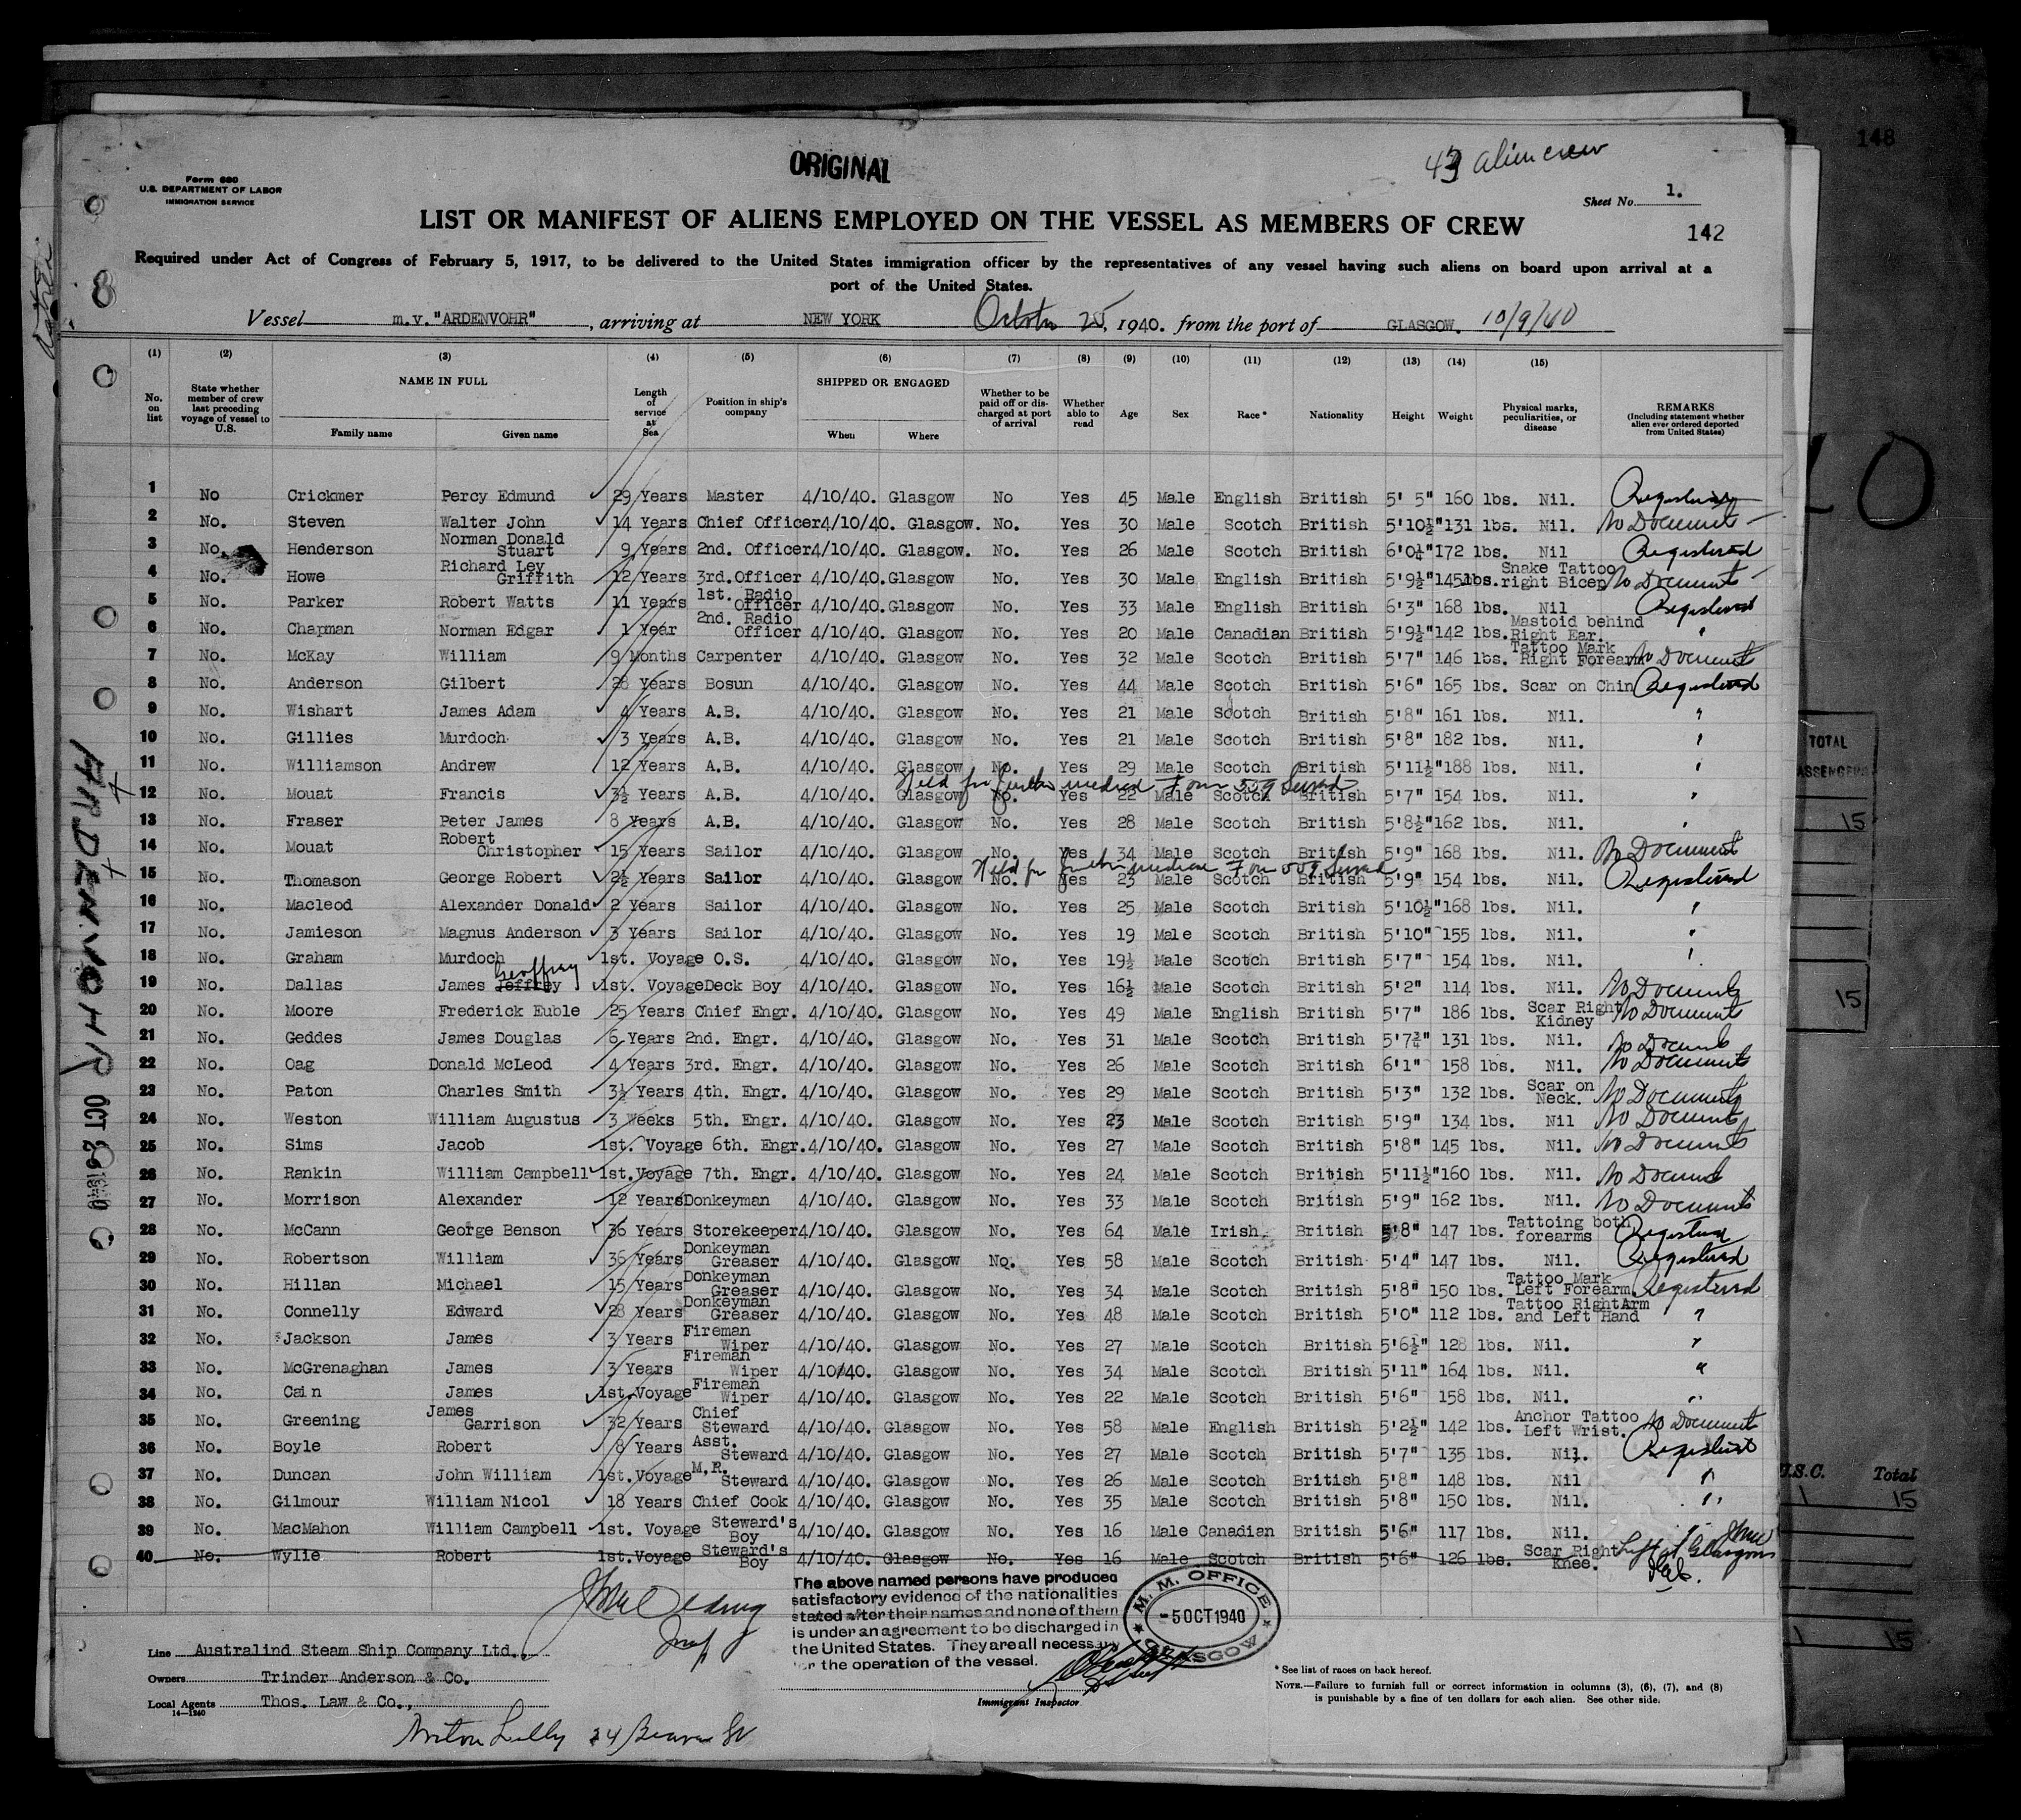 148
ORIGINAL
43 alien crew
Form 680
U.S. DEPARTMENT OF LABOR
IMMIGRATION SERVICE
Sheet No. 1.
LIST OR MANIFEST OF ALIENS EMPLOYED ON THE VESSEL AS MEMBERS OF CREW
142
Required under Act of Congress of February 5, 1917, to be delivered to the United States immigration officer by the representatives of any vessel having such aliens on board upon arrival at a
port of the United States.
Vessel m.v."ARDENVOHR", arriving at NEW YORK October 25, 1940. from the port of GLASGOW. 10/9/40
(1) (2) (3) (4) (5) (6) (7) (8) (9) (10) (11) (12) (13) (14) (15)
No. on list
State whether member of crew last preceding voyage of vessel to U.S.
NAME IN FULL
Family name
Given name
Length of service at Sea
Position in ship's company
SHIPPED OR ENGAGED
When
Where
Whether to be paid off or discharged at port of arrival
Whether able to read
Age
Sex
Race*
Nationality
Height
Weight
Physical marks, peculiarities, or disease
REMARKS
(Including statement whether alien ever ordered deported from United States)
1 No Crickmer Percy Edmund 29 Years Master 4/10/40. Glasgow No Yes 45 Male English British 5' 5" 160 lbs. Nil.
2 No. Steven Walter John 14 Years Chief Officer 4/10/40. Glasgow. No. Yes 30 Male Scotch British 5'10½" 131 lbs. Nil. No Documents
3 No. Henderson Norman Donald Stuart 9 Years 2nd. Officer 4/10/40. Glasgow. No. Yes 26 Male Scotch British 6'0¼" 172 lbs. Nil Registered
4 No. Howe Richard Ley Griffith 12 Years 3rd.Officer 4/10/40. Glasgow No. Yes 30 Male English British 5'9½" 145lbs. Snake Tattoo right Bicep No Documents
5 No. Parker Robert Watts 11 Years 1st. Radio Officer 4/10/40. Glasgow No. Yes 33 Male English British 6'3" 168 lbs. Nil Registered
6 No. Chapman Norman Edgar 1 Year 2nd. Radio Officer 4/10/40. Glasgow No. Yes 20 Male Canadian British 5'9½" 142 lbs. Mastoid behind Right Ear. "
7 No. McKay William 9 Months Carpenter 4/10/40. Glasgow No. Yes 32 Male Scotch British 5'7" 146 lbs. Tattoo Mark Right Forearm No Documents
8 No. Anderson Gilbert 28 Years Bosun 4/10/40. Glasgow No. Yes 44 Male Scotch British 5'6" 165 lbs. Scar on Chin Registered
9 No. Wishart James Adam 4 Years A.B. 4/10/40. Glasgow No. Yes 21 Male Scotch British 5'8" 161 lbs. Nil. "
10 No. Gillies Murdoch 3 Years A.B. 4/10/40. Glasgow No. Yes 21 Male Scotch British 5'8" 182 lbs. Nil. "
11 No. Williamson Andrew 12 Years A.B. 4/10/40. Glasgow No. Yes 29 Male Scotch British 5'11½" 188 lbs. Nil. "
Held for further medical Form 559 Served
12 No. Mouat Francis 3½ Years A.B. 4/10/40. Glasgow No. Yes 22 Male Scotch British 5'7" 154 lbs. Nil. "
13 No. Fraser Peter James 8 Years A.B. 4/10/40. Glasgow No. Yes 28 Male Scotch British 5'8½" 162 lbs. Nil. "
14 No. Mouat Robert Christopher 15 Years Sailor 4/10/40. Glasgow No. Yes 34 Male Scotch British 5'9" 168 lbs. Nil. No Document
Held for further medical Form 559 Served
15 No. Thomason George Robert 2½ Years Sailor 4/10/40. Glasgow No. Yes 23 Male Scotch British 5'9" 154 lbs. Nil. Registered
16 No. Macleod Alexander Donald 2 Years Sailor 4/10/40. Glasgow No. Yes 25 Male Scotch British 5'10½" 168 lbs. Nil. "
17 No. Jamieson Magnus Anderson 3 Years Sailor 4/10/40. Glasgow No. Yes 19 Male Scotch British 5'10" 155 lbs. Nil. "
18 No. Graham Murdoch 1st. Voyage O.S. 4/10/40. Glasgow No. Yes 19½ Male Scotch British 5'7" 154 lbs. Nil. "
19 No. Dallas James Jeffrey Geoffrey 1st. Voyage Deck Boy 4/10/40. Glasgow No. Yes 16½ Male Scotch British 5'2" 114 lbs. Nil. No Documents
20 No. Moore Frederick Euble 25 Years Chief Engr. 4/10/40. Glasgow No. Yes 49 Male English British 5'7" 186 lbs. Scar Right Kidney No Documents
21 No. Geddes James Douglas 6 Years 2nd. Engr. 4/10/40. Glasgow No. Yes 31 Male Scotch British 5'7¾" 131 lbs. Nil. No Documents
22 No. Oag Donald McLeod 4 Years 3rd. Engr. 4/10/40. Glasgow No. Yes 26 Male Scotch British 6'1" 158 lbs. Nil. No Documents
23 No. Paton Charles Smith 3½ Years 4th. Engr. 4/10/40. Glasgow No. Yes 29 Male Scotch British 5'3" 132 lbs. Scar on Neck. No Documents
24 No. Weston William Augustus 3 Weeks 5th. Engr. 4/10/40. Glasgow No. Yes 23 Male Scotch British 5'9" 134 lbs. Nil No Documents
25 No. Sims Jacob 1st. Voyage 6th. Engr. 4/10/40. Glasgow No. Yes 27 Male Scotch British 5'8" 145 lbs. Nil. No Documents
26 No. Rankin William Campbell 1st. Voyage 7th. Engr. 4/10/40. Glasgow No. Yes 24 Male Scotch British 5'11½" 160 lbs. Nil. No Document
27 No. Morrison Alexander 12 Years Donkeyman 4/10/40. Glasgow No. Yes 33 Male Scotch British 5'9" 162 lbs. Nil. No Documents
28 No. McCann George Benson 36 Years Storekeeper 4/10/40. Glasgow No. Yes 64 Male Irish. British 5'8" 147 lbs. Tattoing both forearms Registered
29 No. Robertson William 36 Years Donkeyman Greaser 4/10/40. Glasgow No. Yes 58 Male Scotch British 5'4" 147 lbs. Nil. Registered
30 No. Hillan Michael 15 Years Donkeyman Greaser 4/10/40. Glasgow No. Yes 34 Male Scotch British 5'8" 150 lbs. Tattoo Mark Left Forearm. Registered
31 No. Connelly Edward 28 Years Donkeyman Greaser 4/10/40. Glasgow No. Yes 48 Male Scotch British 5'0" 112 lbs. Tattoo RightArm and Left Hand "
32 No. Jackson James 3 Years Fireman Wiper 4/10/40. Glasgow No. Yes 27 Male Scotch British 5'6½" 128 lbs. Nil. "
33 No. McGrenaghan James 3 Years Fireman Wiper 4/10/40. Glasgow No. Yes 34 Male Scotch British 5'11" 164 lbs. Nil. "
34 No. Cain James 1st.Voyage Fireman Wiper 4/10/40. Glasgow No. Yes 22 Male Scotch British 5'6" 158 lbs. Nil. "
35 No. Greening James Garrison 32 Years Chief Steward 4/10/40. Glasgow No. Yes 58 Male English British 5'2½" 142 lbs. Anchor Tattoo Left Wrist. No Documents
36 No. Boyle Robert 8 Years Asst. Steward 4/10/40. Glasgow No. Yes 27 Male Scotch British 5'7" 135 lbs. Nil. Registered
37 No. Duncan John William 1st.Voyage M.R. Steward 4/10/40. Glasgow No. Yes 26 Male Scotch British 5'8" 148 lbs. Nil "
38 No. Gilmour William Nicol 18 Years Chief Cook 4/10/40. Glasgow No. Yes 35 Male Scotch British 5'8" 150 lbs. Nil. "
39 No. MacMahon William Campbell 1st. Voyage Steward's Boy 4/10/40. Glasgow No. Yes 16 Male Canadian British 5'6" 117 lbs. Nil. "
40 No. Wylie Robert 1st.Voyage Steward's Boy 4/10/40. Glasgow No. Yes 16 Male Scotch British 5'6" 126 lbs. Scar Right Knee. Left at Glasgow
The above named persons have produced
satisfactory evidence of the nationalities
stated after their names and none of them
is under an agreement to be discharged in
the United States. They are all necessary
for the operation of the vessel.
M. M. OFFICE
-5 OCT 1940
GLASGOW
Line Australind Steam Ship Company Ltd.,
Owners Trinder Anderson & Co.
Local Agents Thos. Law & Co.,
14-1240
Immigrant Inspector
* See list of races on back hereof.
NOTE.—Failure to furnish full or correct information in columns (3), (6), (7), and (8)
is punishable by a fine of ten dollars for each alien. See other side.
Norton Lilly 24 Beaver St
ARDENVOHR OCT 26 1940
10
TOTAL
PASSENGERS
15
15
U.S.C. Total
1 15
1 15